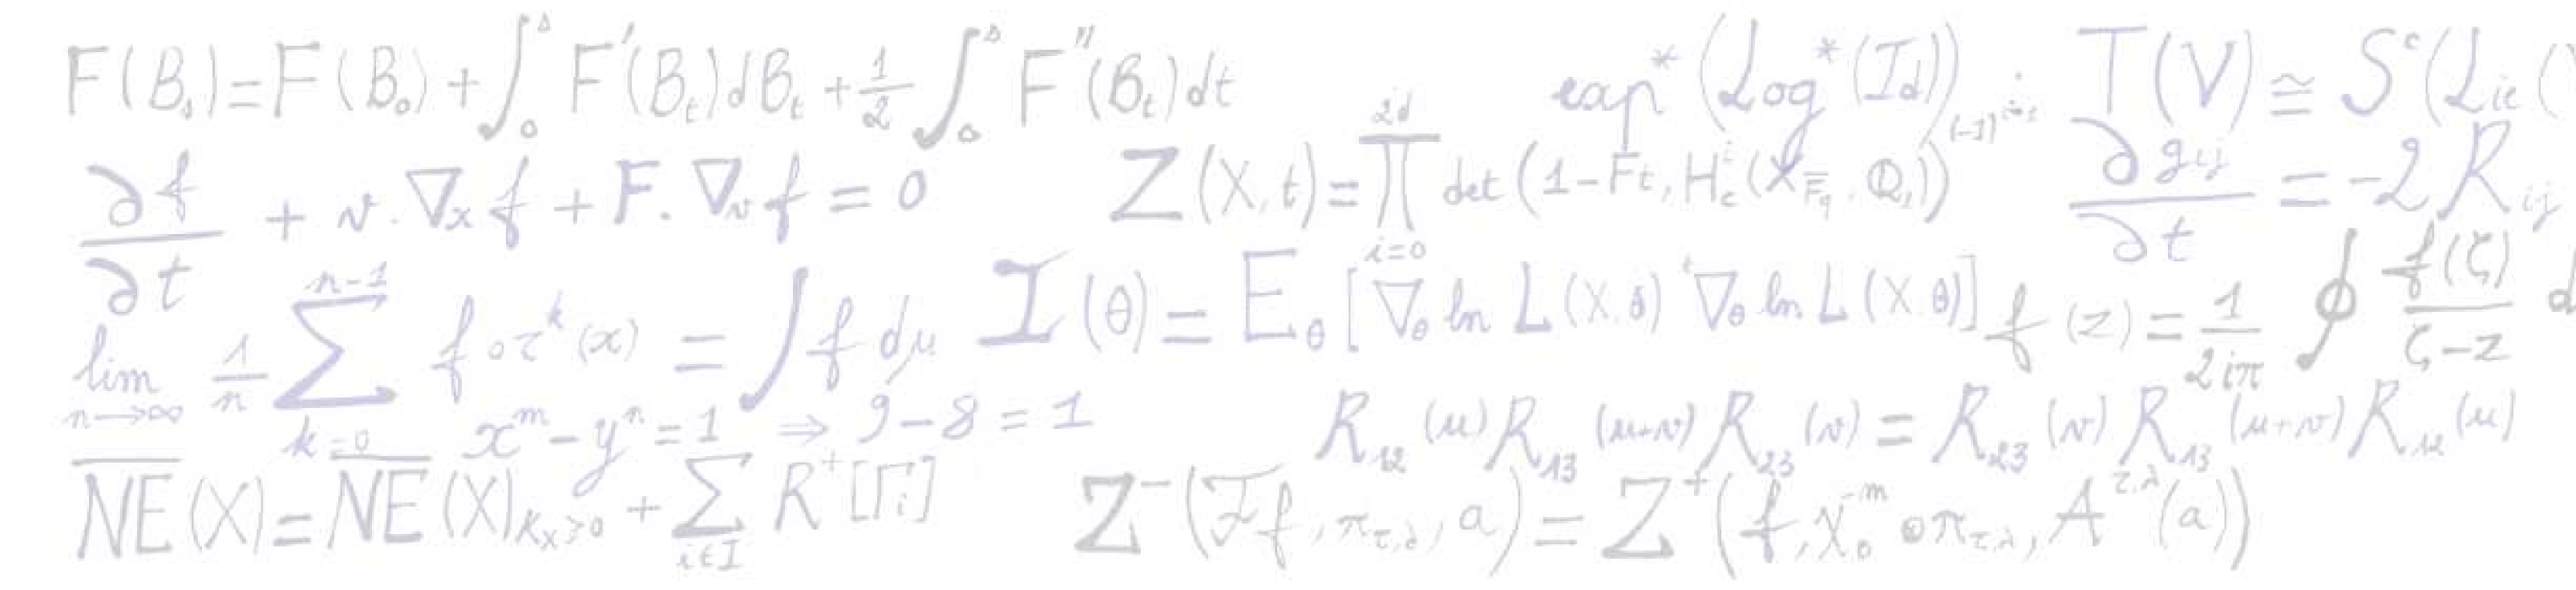 F(B_s) = F(B_0) + ∫_0^s F'(B_t) dB_t + 1/2 ∫_0^s F''(B_t) dt
exp*(Log*(Id))
T(V) ≅ S^c(Lie(V
∂f/∂t + v.∇_x f + F.∇_v f = 0
Z(X,t) = ∏_{i=0}^{2d} det(1-Ft, H_c^i(X_{F̅_q}, Q_l))^{(-1)^{i+1}}
∂g_ij/∂t = -2R_ij
lim_{n→∞} 1/n Σ_{k=0}^{n-1} f∘τ^k(x) = ∫f dμ
I(θ) = E_θ[∇_θ ln L(X,θ) ^t∇_θ ln L(X,θ)]
f(z) = 1/2iπ ∮ f(ζ)/ζ-z d
x^m - y^n = 1 ⇒ 9 - 8 = 1
R_12(u) R_13(u+v) R_23(v) = R_23(v) R_13(u+v) R_12(u)
N̅E̅(X) = N̅E̅(X)_{K_X≥0} + Σ_{i∈I} R^+[Γ_i]
Z^-(ℱf, π_{τ,λ}, a) = Z^+(f, χ_0^{-m} ⊗ π_{τ,λ}, A^{τ,λ}(a))